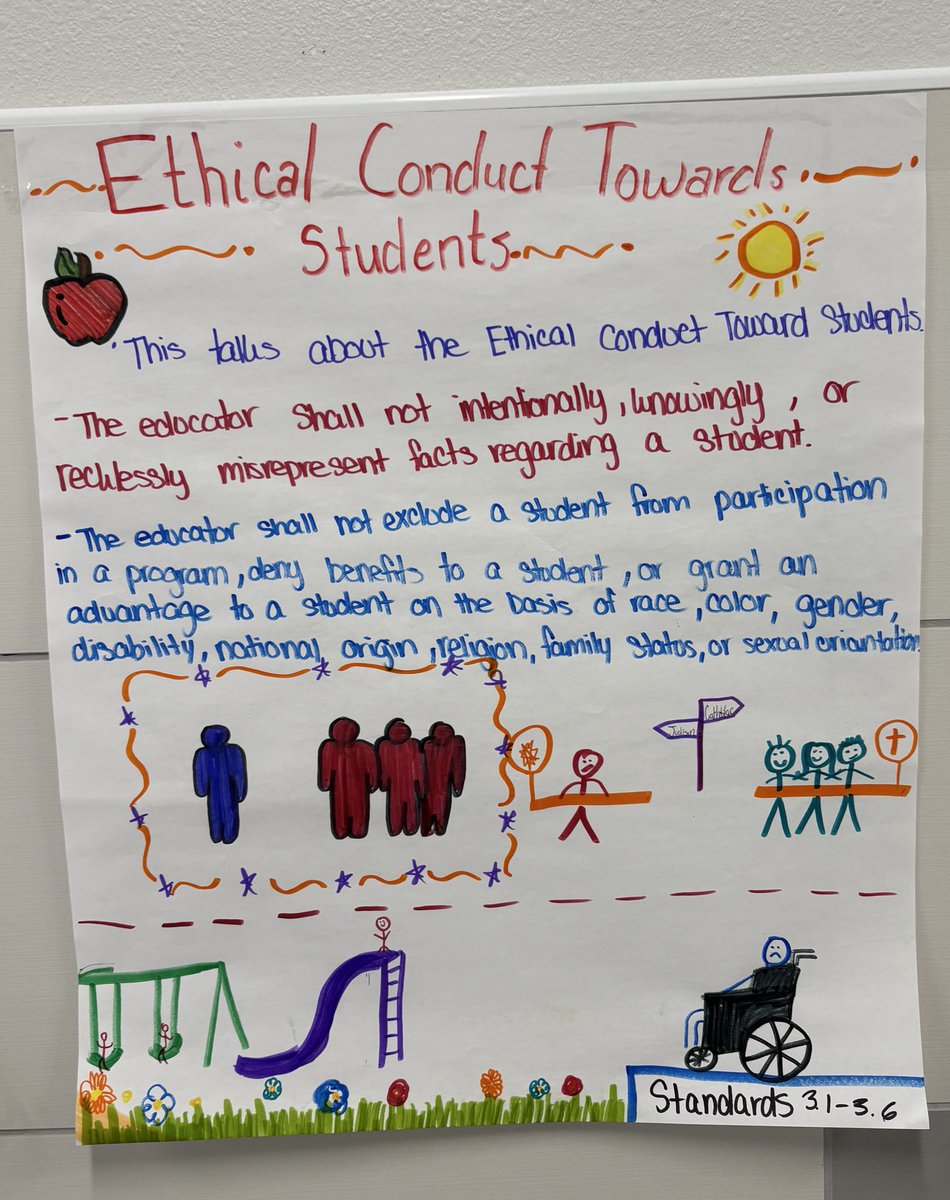 Ethical Conduct Towards
Students
• This talks about the Ethical Conduct Toward Students.
- The educator shall not intentionally, knowingly, or
recklessly misrepresent facts regarding a student.
- The educator shall not exclude a student from participation
in a program, deny benefits to a student, or grant an
advantage to a student on the basis of race, color, gender,
disability, national origin, religion, family status, or sexual oriantation.
Catholic
Standards 3.1-3.6